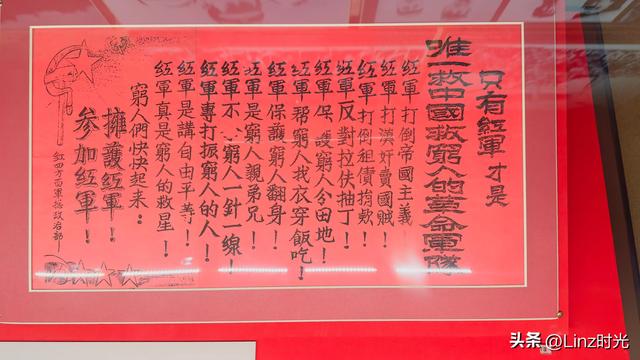 只有紅軍才是
唯一救中國救窮人的革命軍隊
紅軍打倒帝國主義
紅軍打漢奸賣國賊！
紅軍打倒租債捐款！
紅軍反對拉伕抽丁！
紅軍保護窮人分田地！
紅軍帮窮人找衣穿飯吃！
紅軍保護窮人翻身！
紅軍是窮人親弟兄！
紅軍不窮人一針一線！
紅軍專打振窮人的人！
紅軍是講自由平等！
紅軍真是窮人的救星！
窮人們快快起來：
擁護紅軍！
參加紅軍！
紅四方面軍政治部
头条 @Linz时光